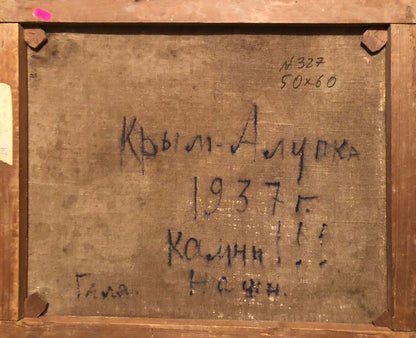 N 327
50x60
Крым-Алупка
1937 г.
Камни!!!
Гала. Наши.